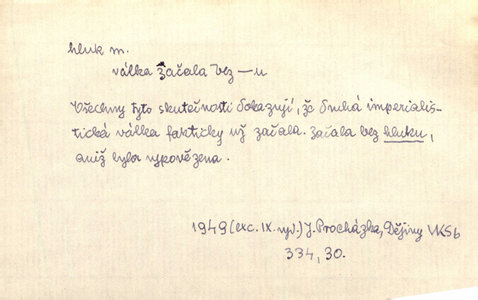 hluk m.
válka začala bez —u
Všechny tyto skutečnosti dokazují, že druhá imperialis-
tická válka fakticky už začala. Začala bez hluku,
aniž byla vypovězena.
1949 (exc. IX. vyd.) J. Procházka, Dějiny VKSb
334, 30.